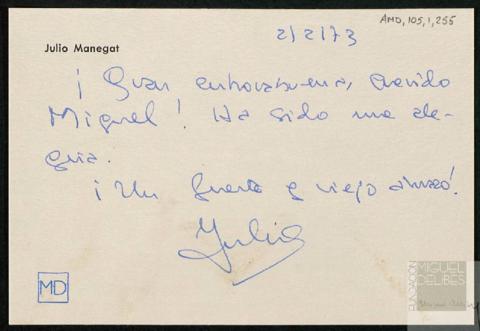 AMD,105,1,255
2/2/73
Julio Manegat
¡Gran enhorabuena, querido
Miguel! Ha sido una ale-
gría.
¡Un fuerte y viejo abrazo!
Julio
MD
FUNDACIÓN
MIGUEL
DELIBES